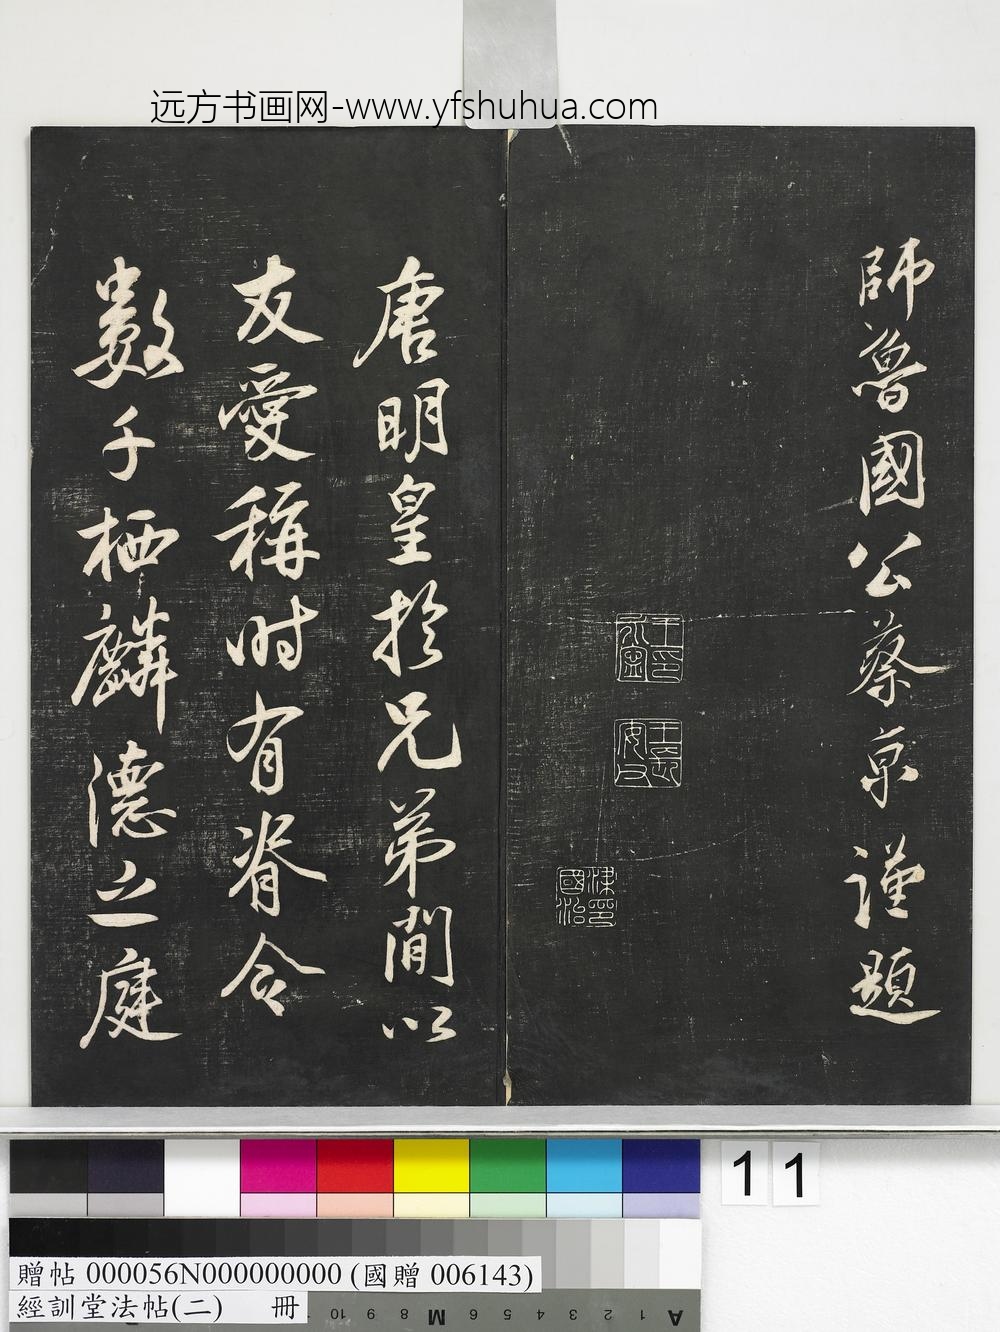 远方书画网-www.yfshuhua.com
師魯國公蔡京謹題
唐明皇於兄弟間以
友愛稱時有脊令
數千栖麟德之庭
國治
11
贈帖 000056N000000000 (國贈 006143)
經訓堂法帖(二) 冊
10 9 8 M 6 5 4 3 2 1 A